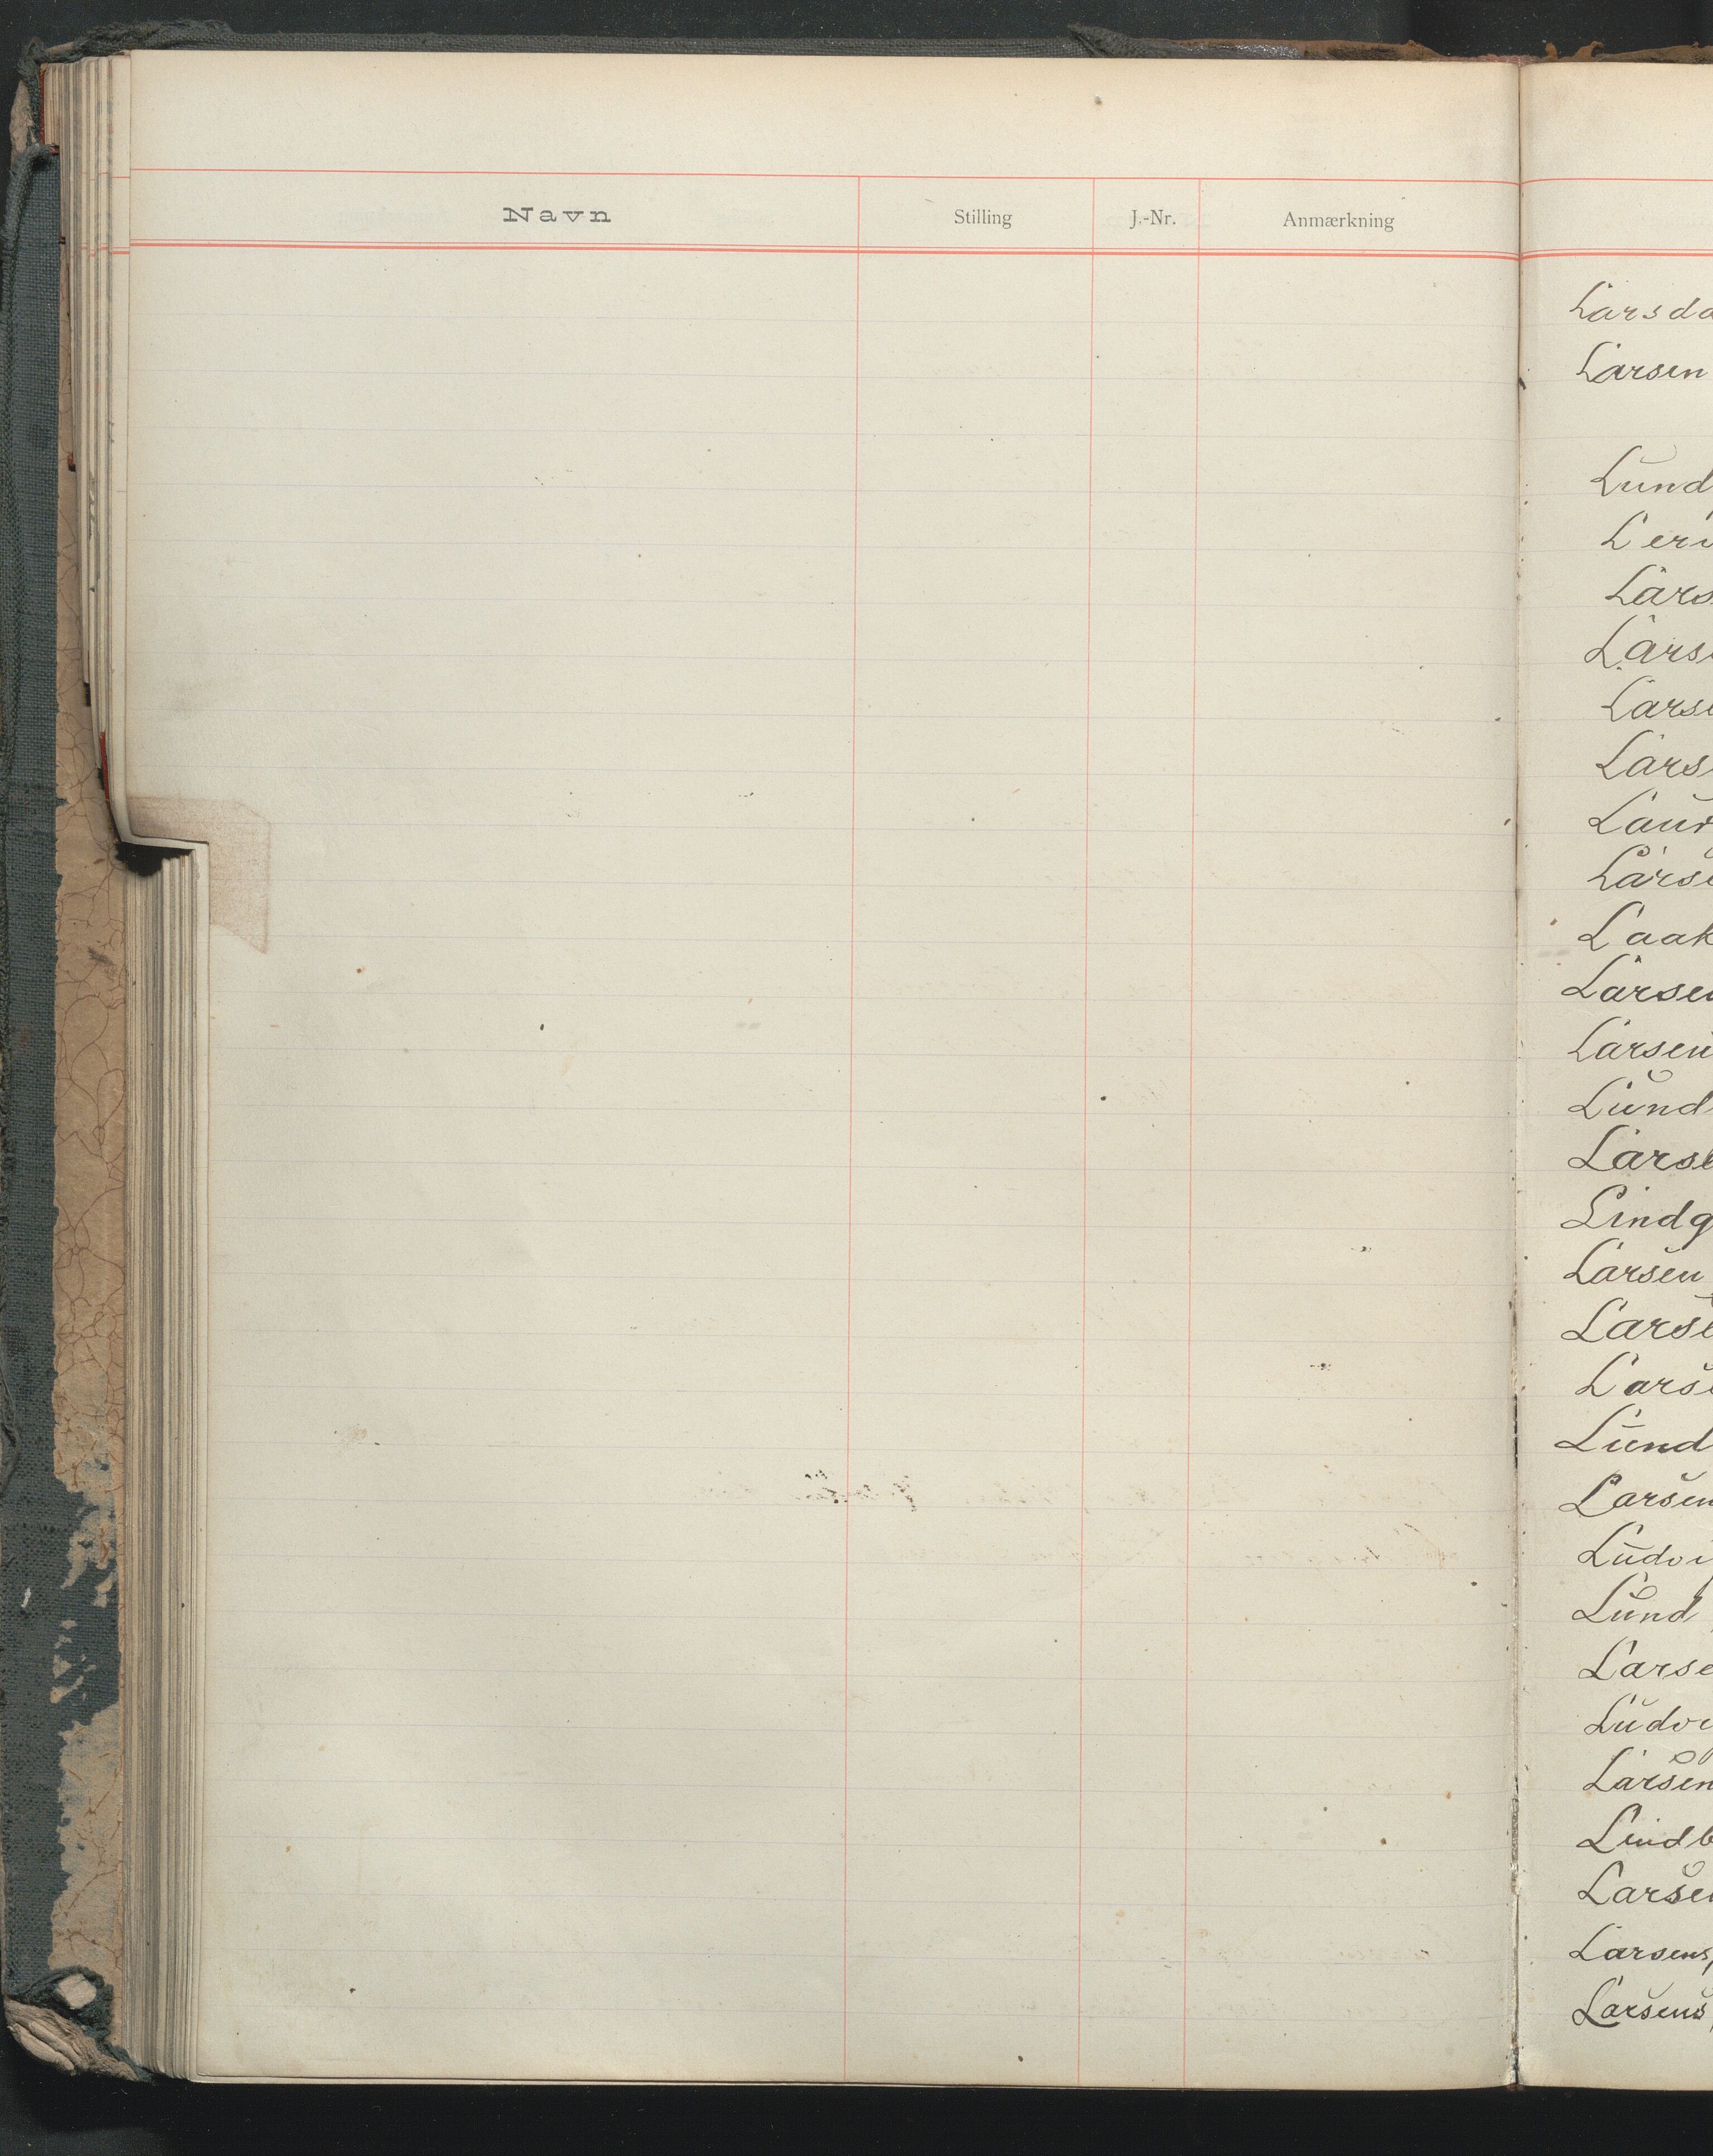 Navn Stilling J.-Nr. Anmærkning
Larsda
Larsen
Lund
Lars
Larse
Larse
Lars
Laur
Larse
Laak
Larsen
Larsen
Lund
Larse
Lindg
Larsen
Larse
Larse
Lund
Larsen
Ludvi
Lund
Larse
Ludvi
Larsen
Lindb
Larsen
Larsens,
Larsens,